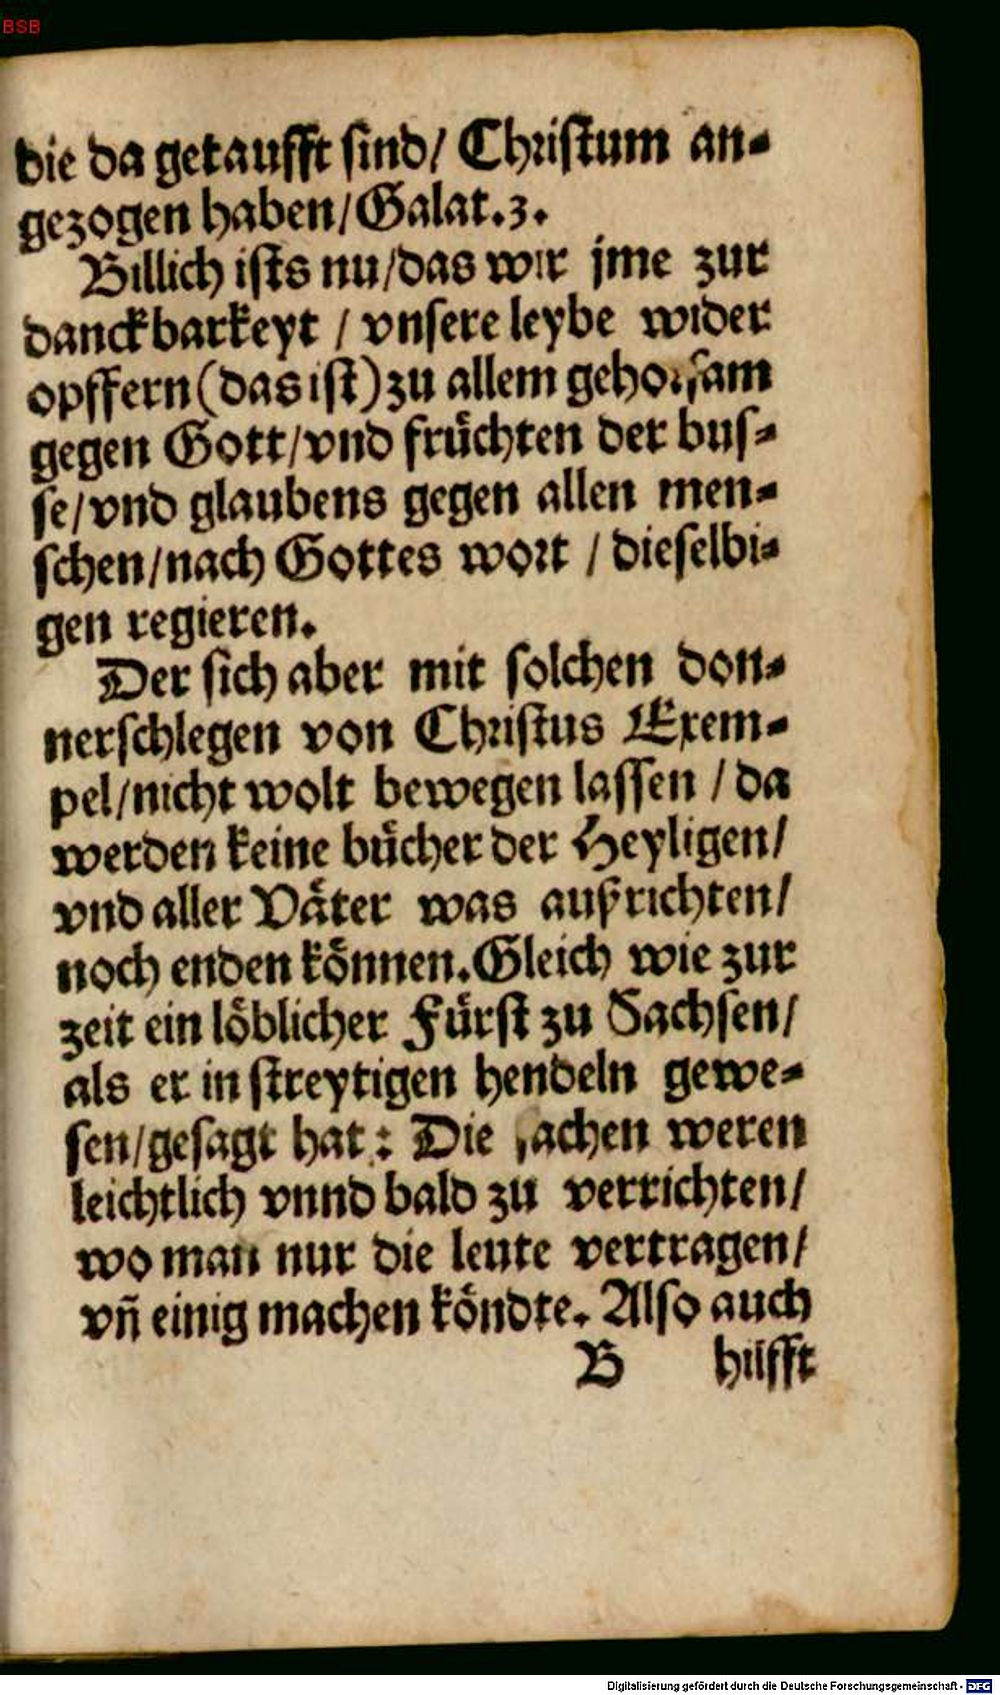 BSB
die da getaufft sind/ Christum an-
gezogen haben/Galat.3.
Billich ists nu/das wir jme zur
danckbarkeyt / vnsere leybe wider
opffern(das ist)zu allem gehorsam
gegen Gott/vnd früchten der bus-
se/vnd glaubens gegen allen men-
schen/nach Gottes wort / dieselbi-
gen regieren.
Der sich aber mit solchen don-
nerschlegen von Christus Exem-
pel/nicht wolt bewegen lassen / da
werden keine bücher der Heyligen/
vnd aller Väter was außrichten/
noch enden können.Gleich wie zur
zeit ein löblicher Fürst zu Sachsen/
als er in streytigen hendeln gewe-
sen/gesagt hat: Die sachen weren
leichtlich vnnd bald zu verrichten/
wo man nur die leute vertragen/
vñ einig machen köndte. Also auch
B hilfft
Digitalisierung gefördert durch die Deutsche Forschungsgemeinschaft - DFG